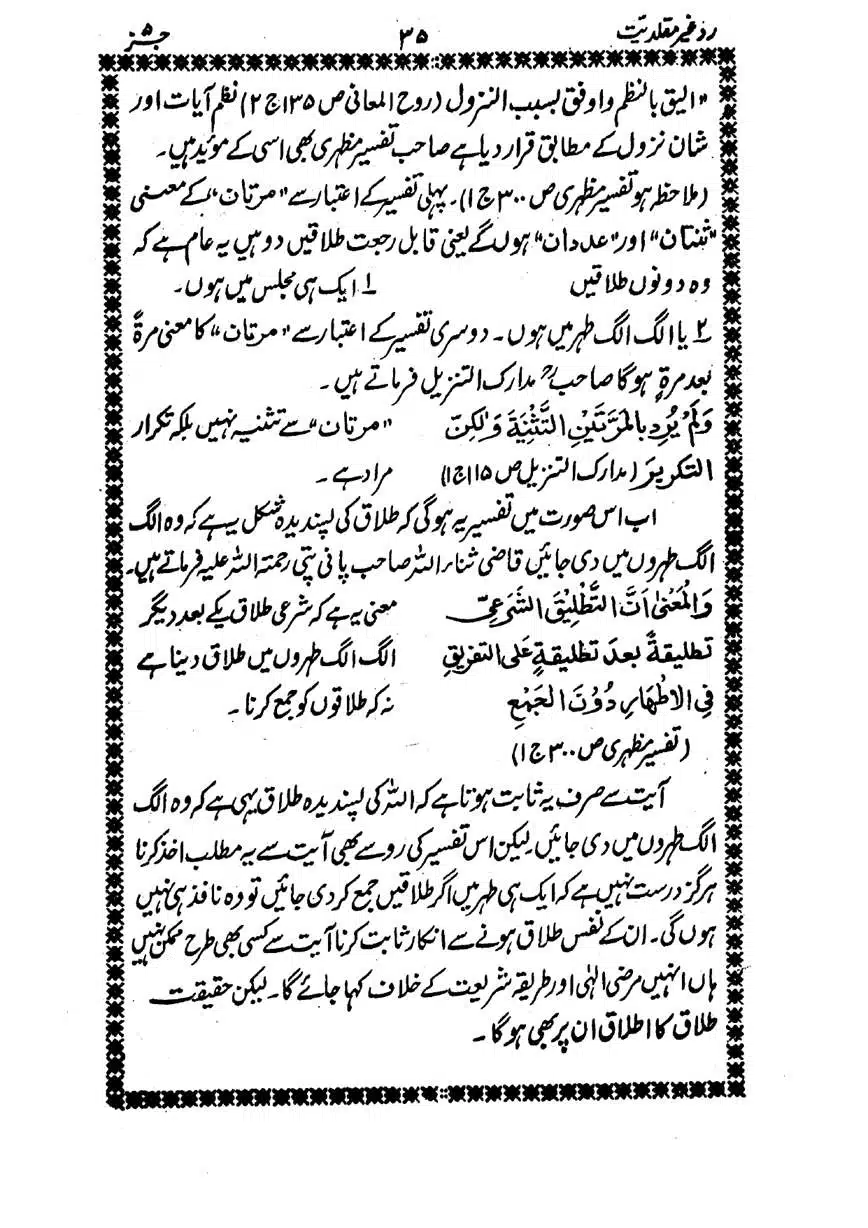 رد غیر مقلدیت ۳۵ جز ۵
"الیق بالنظم واوفق بسبب النزول (روح المعانی ص ۱۳۵ ج ۲) نظم آیات اور
شان نزول کے مطابق قرار دیا ہے صاحب تفسیر مظہری بھی اسی کے موید ہیں۔
(ملاحظہ ہو تفسیر مظہری ص ۳۰۰ ج ۱)۔ پہلی تفسیر کے اعتبار سے "مرتان" کے معنی
"ثنتان" اور "عددان" ہوں گے یعنی قابل رجعت طلاقیں دو ہیں یہ عام ہے کہ
وہ دونوں طلاقیں ۱ ایک ہی مجلس میں ہوں۔
۲ یا الگ الگ طہر میں ہوں۔ دوسری تفسیر کے اعتبار سے "مرتان" کا معنی مرۃً
بعد مرۃٍ ہوگا صاحبؒ مدارک التنزیل فرماتے ہیں۔
وَلَمْ یُرِدْ بِالْمَرَّتَیْنِ التَّثْنِیَةَ وَلٰکِنّ "مرتان" سے تثنیہ نہیں بلکہ تکرار
التکریرَ (مدارک التنزیل ص ۱۱۵ ج ۱) مراد ہے۔
اب اس صورت میں تفسیر یہ ہوگی کہ طلاق کی پسندیدہ شکل یہ ہے کہ وہ الگ
الگ طہروں میں دی جائیں قاضی ثناء اللہ صاحب پانی پتی رحمتہ اللہ علیہ فرماتے ہیں۔
وَالْمَعْنٰی اَنَّ التَّطْلِیْقَ الشَّرَعِیّ معنی یہ ہے کہ شرعی طلاق یکے بعد دیگر
تطلیقةٌ بعدَ تطلیقةٍ عَلَی التفریقِ الگ الگ طہروں میں طلاق دینا ہے
فِی الْاَطْهَارِ دُوْنَ الْجَمْعِ نہ کہ طلاقوں کو جمع کرنا۔
(تفسیر مظہری ص ۳۰۰ ج ۱)
آیت سے صرف یہ ثابت ہوتا ہے کہ اللہ کی پسندیدہ طلاق یہی ہے کہ وہ الگ
الگ طہروں میں دی جائیں۔ لیکن اس تفسیر کی رو سے بھی آیت سے یہ مطلب اخذ کرنا
ہرگز درست نہیں ہے کہ ایک ہی طہر میں اگر طلاقیں جمع کر دی جائیں تو وہ نافذ ہی نہیں
ہوں گی۔ ان کے نفس طلاق ہونے سے انکار ثابت کرنا آیت سے کسی بھی طرح ممکن نہیں
ہاں انہیں مرضی الٰہی اور طریقہ شریعت کے خلاف کہا جائے گا۔ لیکن حقیقت
طلاق کا اطلاق ان پر بھی ہوگا۔